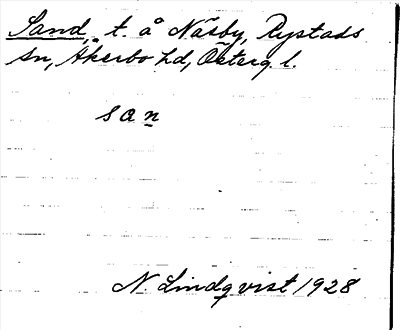 Sand, t. å Näsby, Rystads
sn, Åkerbo hd, Österg. l.
san
N. Lindqvist 1928